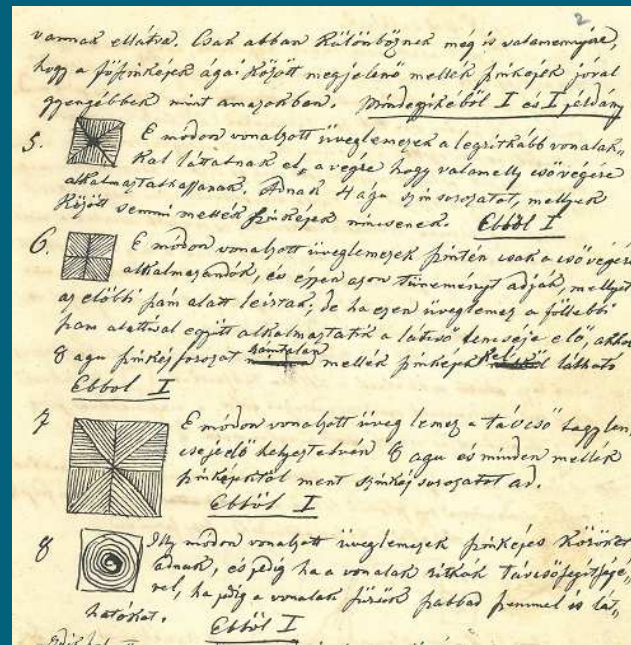 2
vannak ellátva. Csak abban különböznek még is valamennyire,
hogy a főszinképek ágai között megjelenő mellék szinképek jóval
gyengébbek mint amazokban. Mindegyikéből I és I példány
5. E módon vonalzott üveglemezek a legritkább vonalak„
kal láttatnak el, a végre hogy valamelly csővégére
alkalmaztathassanak. Adnak 4 águ szinsorozatot, mellyek
között semmi mellék szinképek nincsenek. Ebből I
6. E módon vonalzott üveglemezek szintén csak a csővégére
alkalmazandók, és éppen azon tüneményt adják, mellyet
az előbbi szám alatt leirtak; de ha ezen üveglemez a föllebbi
szám alattival együtt alkalmaztatik a látcső lencséje elő, akkor
8 agu szinkép sorozat számtalan mellék szinképekkel látható
Ebbol I
7 E módon vonalzott üveg lemez a távcső nagy len„
cséjeelő helyeztetvén 8 agu és minden mellék
szinképektől ment szinkép sorozatot ad.
Ebből I
8 Illy módon vonalzott üveglemezek szinképes köröket
adnak, és pedig ha a vonalak ritkák távcsősegitségé„
vel, ha pedig a vonalak sürűk szabad szemmel is lát„
hatókat. Ebből I